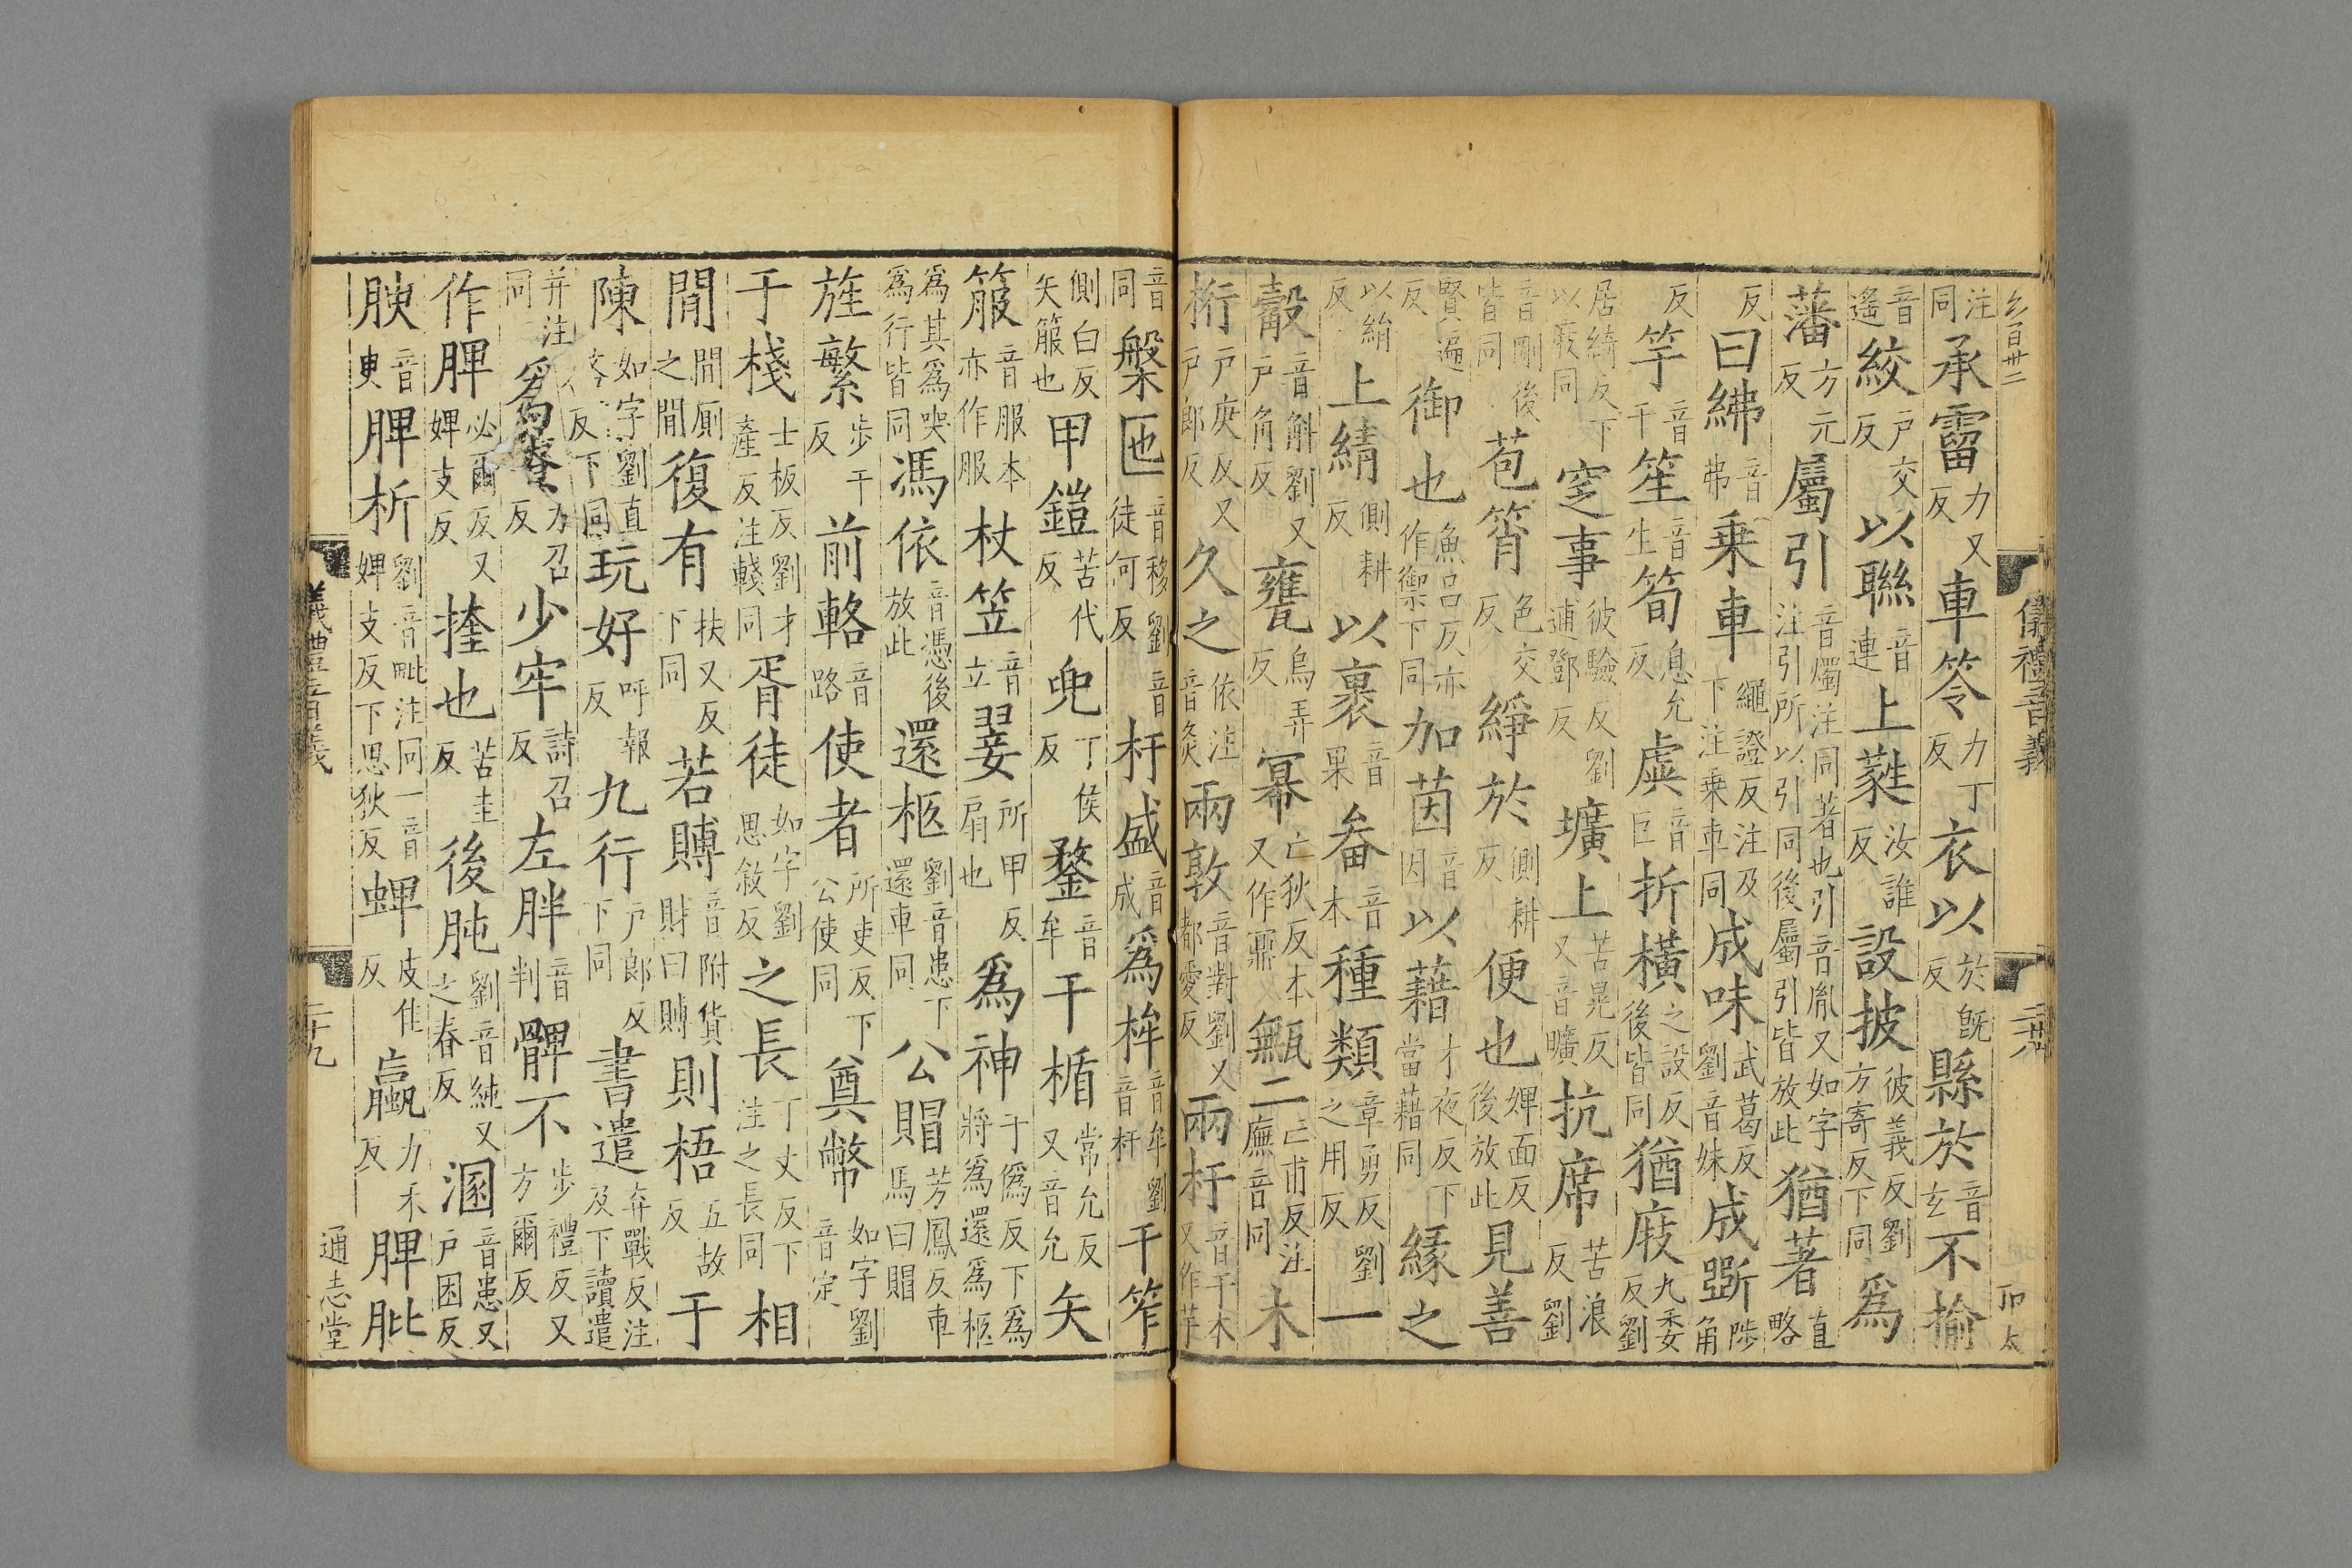 注同承霤力又反車笭力丁反衣以於旣反縣於音玄不揄
音遙絞戶交反以聯音連上蕤汝誰反設披彼義反劉方寄反下同爲
藩方元反屬引音燭注同著也引音胤又如字注引所以引同後屬引皆放此猶著直略
反曰紼音弗乗車繩證反注及下注乗車同成味武葛反劉音妹成斲陟角
反竽音于笙音生筍息允反虡音巨折橫之設反後皆同猶庪九委反劉
居綺反下以庪同窆事彼驗反劉逋鄧反壙上苦晃反又音曠抗席苦浪反劉
音剛後皆同苞筲色交反綪於側耕反便也婢面反後放此見善
賢遍反御也魚呂反亦作禦下同加茵音因以藉才夜反下當藉同緣之
以絹反上綪側耕反以裹音果畚音本種類章勇反劉之用反一
觳音斛劉又戶角反甕烏弄反冪亡狄反本又作鼏甒二亡甫反注廡音同木
桁戶庚反又戶郎反久之依注音灸兩敦音對劉又都愛反兩杅音于本又作芋
儀禮音義
卬太
音同槃匜音移劉徒何反音杅盛音成爲桙音牟劉音杅干笮
側白反矢箙也甲鎧苦代反兜丁侯反鍪音牟干楯常允反又音允矢
箙音服本亦作服杖笠音立翣所甲反扇也爲神于僞反下爲將爲還爲柩
爲其爲哭爲行皆同馮依音憑後放此還柩劉音患下還車同公賵芳鳳反車馬曰賵
旌繁步干反前輅音路使者所吏反下公使同奠幣如字劉音定
于棧士板反劉才產反注輚同胥徒如字劉思敘反之長丁丈反下注之長同相
閒閒廁之閒復有扶又反下同若賻音附貨財曰賻則梧五故反于
陳如字劉直反下同玩好呼報反九行戶郎反下同書遣弃戰反注及下讀遣
并注同爲力召反少牢詩召反左胖音判髀不步禮反又方爾反
作脾必爾反又婢支反挃也苦圭反後肫劉音純又之春反溷音患又戶困反
腴音臾脾析劉音毗注同一音婢支反下思狄反蜱皮隹反蠃力禾反脾肶
儀禮音義
二十九
通志堂